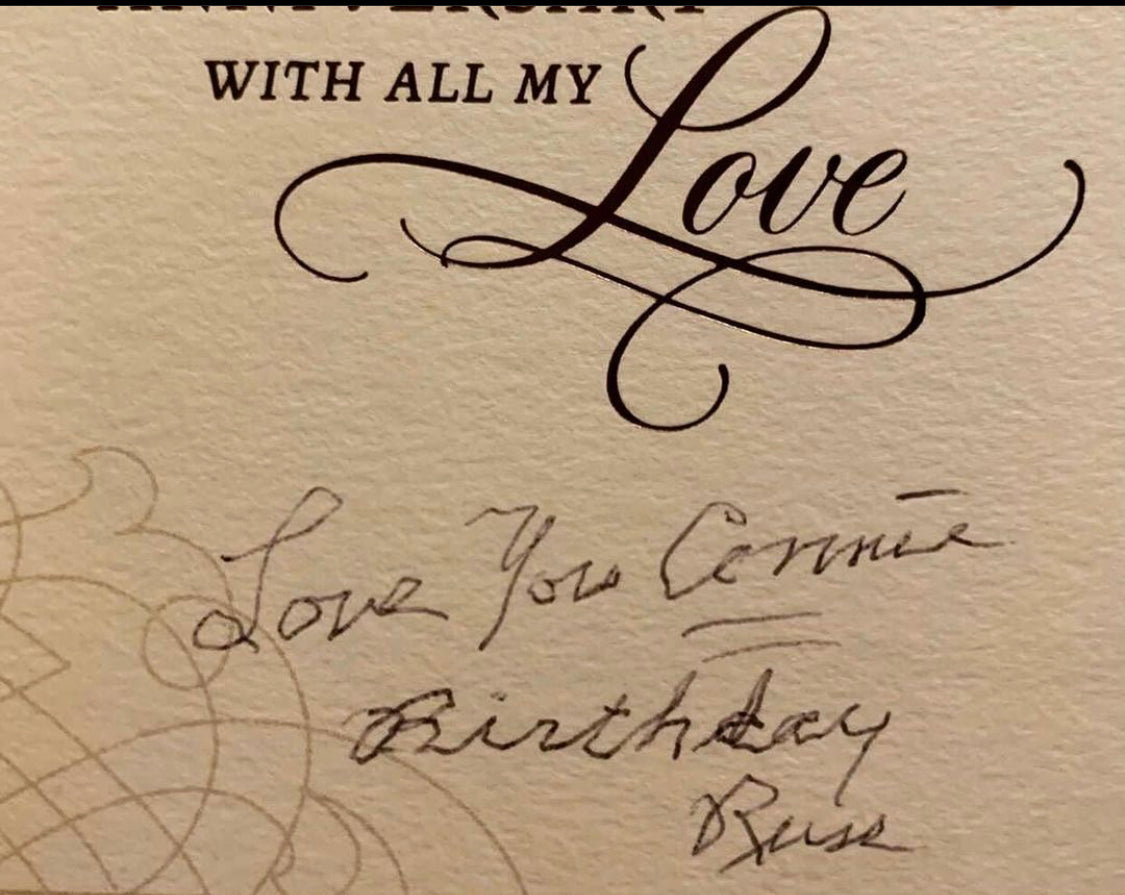 ANNIVERSARY
WITH ALL MY
Love
Love You Connie
Birthday
Russ